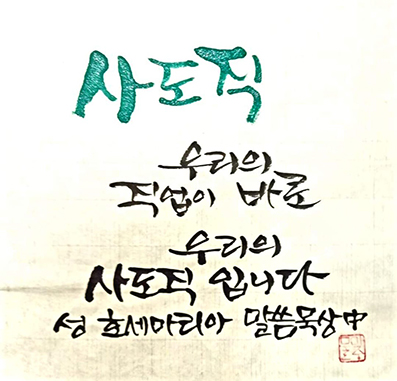 사도직
우리의
직업이 바로
우리의
사도직 입니다
성 호세마리아 말씀묵상中